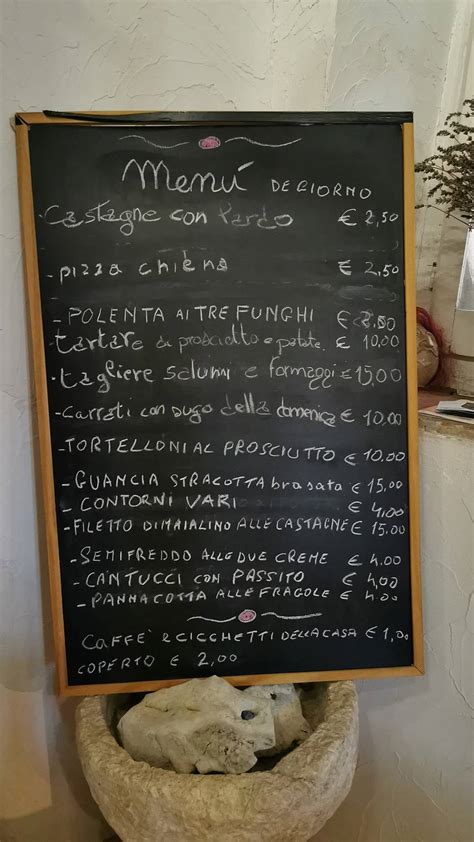 Menú DE GIORNO
- Castagne con Lardo € 2,50
- pizza chiena € 2,50
- POLENTA AI TRE FUNGHI €
- tartare di prosciutto e patate € 10,00
- tagliere salumi e formaggi € 15,00
- Carrati con sugo della domenica € 10,00
- TORTELLONI AL PROSCIUTTO € 10,00
- GUANCIA STRACOTTA brasata € 15,00
- CONTORNI VARI € 4,00
- FILETTO DI MAIALINO ALLE CASTAGNE € 15,00
- SEMIFREDDO ALLE DUE CREME € 4.00
- CANTUCCI CON PASSITO € 4,00
- PANNACOTTA ALLE FRAGOLE € 4.00
CAFFE' E CICCHETTI DELLA CASA € 1,00
COPERTO € 2,00